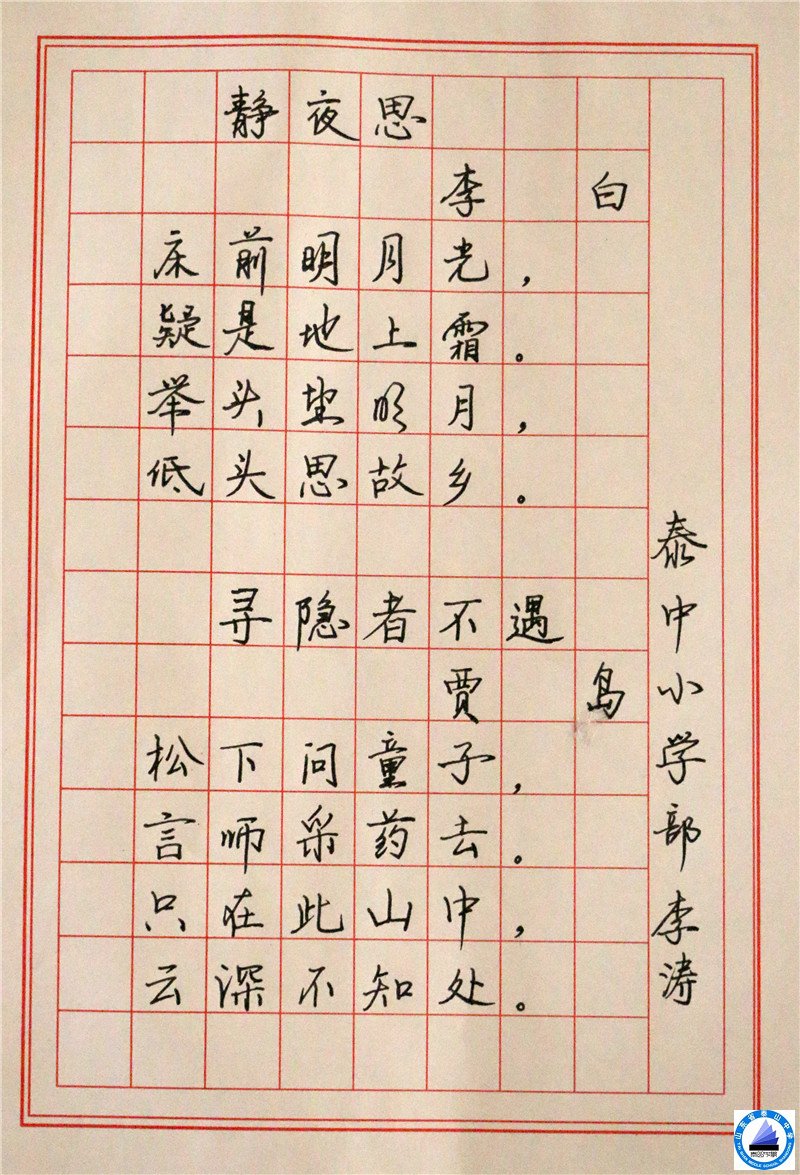 静夜思
李 白
床前明月光，
疑是地上霜。
举头望明月，
低头思故乡。
寻隐者不遇
贾 岛
松下问童子，
言师采药去。
只在此山中，
云深不知处。
泰中小学部李涛
山东省泰山中学